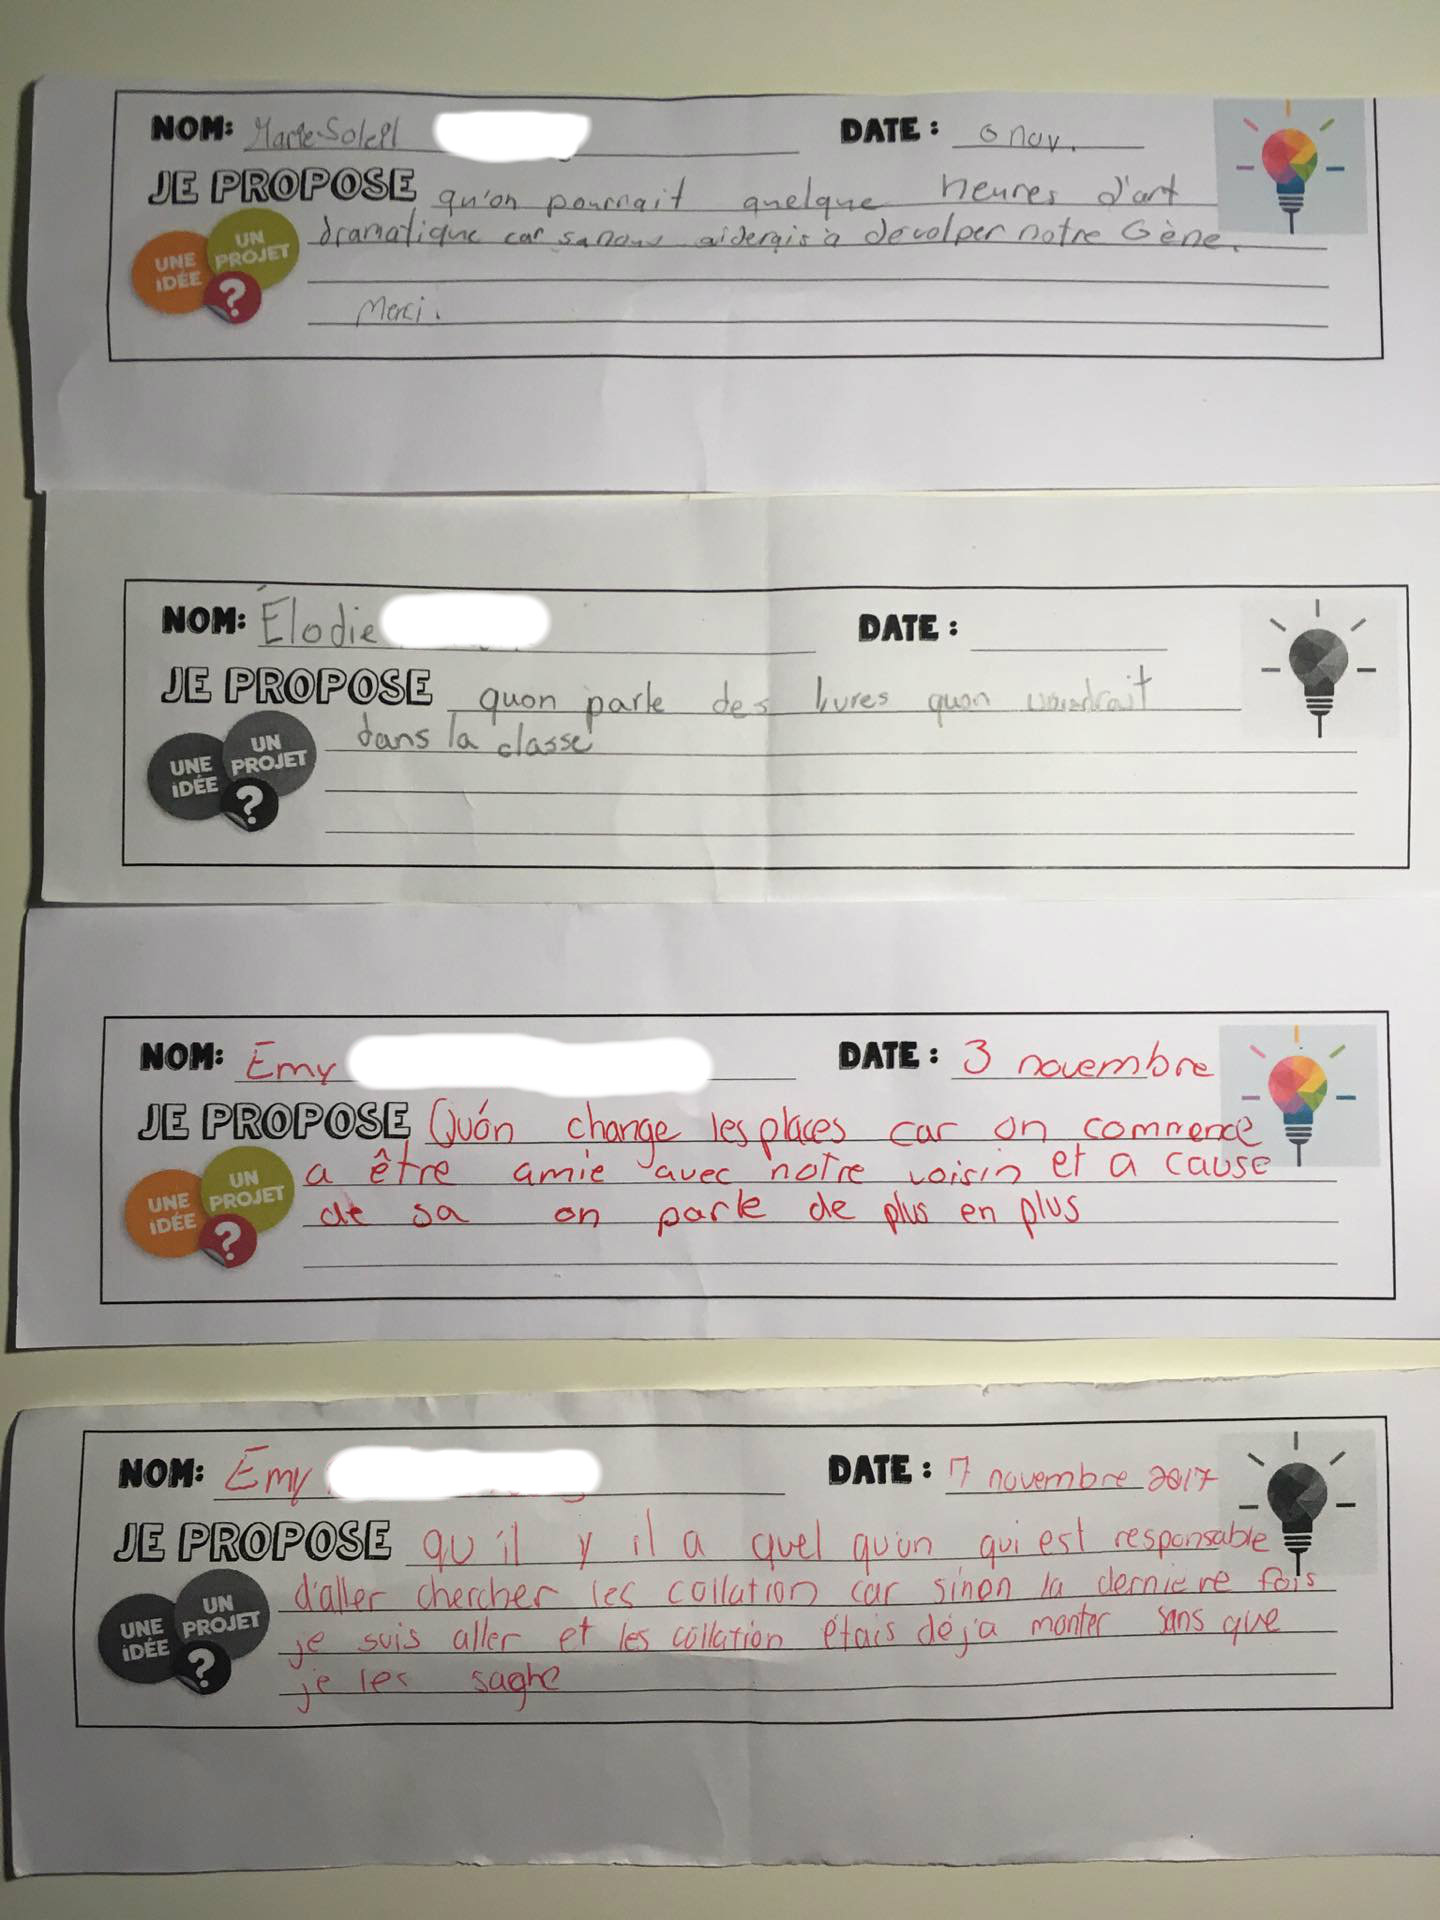 NOM: Marie-Soleil DATE : 6 nov.
JE PROPOSE qu'on pourrait quelque heures d'art
dramatique car sa nous aiderais à devolper notre Gène.
UNE IDÉE
UN PROJET
?
Merci.
NOM: Élodie DATE :
JE PROPOSE quon parle des livres quon voudrait
dans la classe
UNE IDÉE
UN PROJET
?
NOM: Emy DATE : 3 novembre
JE PROPOSE Qu'on change les places car on commence
a être amie avec notre voisin et a cause
de sa on parle de plus en plus
UNE IDÉE
UN PROJET
?
NOM: Emy DATE : 7 novembre 2017
JE PROPOSE qu'il y il a quel qu'un qui est responsable
d'aller chercher les collation car sinon la derniere fois
je suis aller et les collation étais déja monter sans que
je les sache
UNE IDÉE
UN PROJET
?